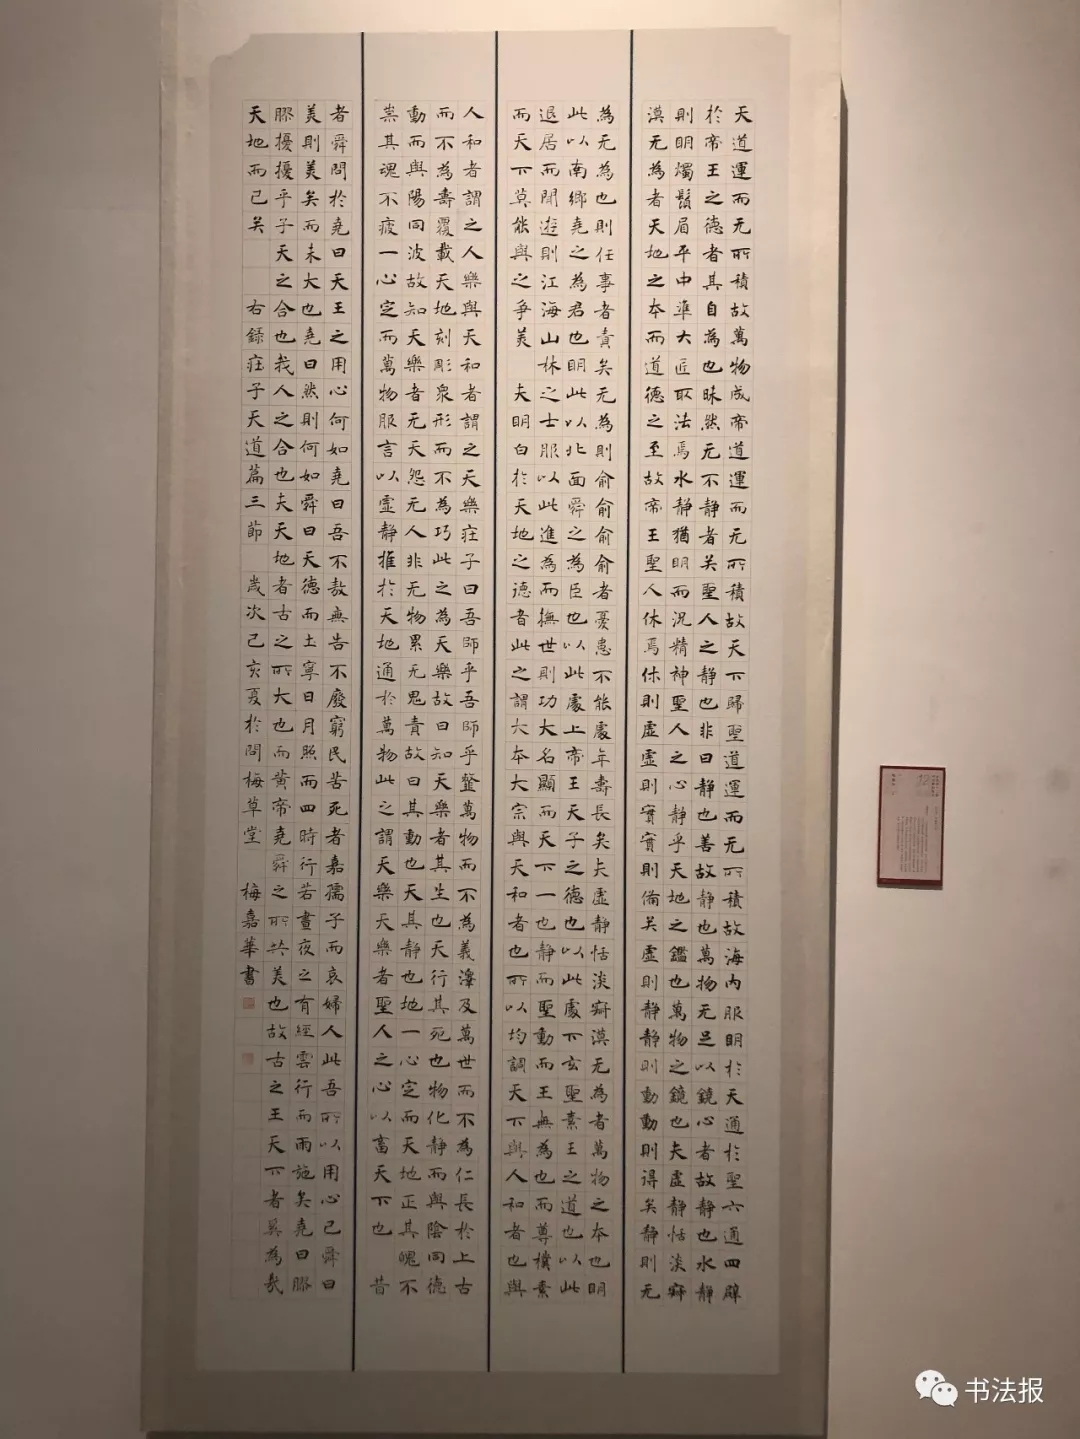 天道運而无所積故萬物成帝道運而无所積故天下歸聖道運而无所積故海内服明於天通於聖六通四辟
於帝王之德者其自為也昧然无不静者矣聖人之静也非曰静也善故静也萬物无足以鏡心者故静也水静
則明燭鬚眉平中準大匠取法焉水静猶明而況精神聖人之心静乎天地之鑑也萬物之鏡也夫虚静恬淡寂
漠无為者天地之本而道德之至故帝王聖人休焉休則虚虚則實實則備矣虚則静静則動動則得矣静則无
為无為也則任事者責矣无為則俞俞俞俞者憂患不能處年壽長矣夫虚静恬淡寂漠无為者萬物之本也明
此以南鄉堯之為君也明此以北面舜之為臣也以此處上帝王天子之德也以此處下玄聖素王之道也以此
退居而閒遊則江海山林之士服以此進為而撫世則功大名顯而天下一也静而聖動而王無為也而尊樸素
而天下莫能與之争美 夫明白於天地之德者此之謂大本大宗與天和者也所以均調天下與人和者也與
人和者謂之人樂與天和者謂之天樂莊子曰吾師乎吾師乎韲萬物而不為義澤及萬世而不為仁長於上古
而不為壽覆載天地刻彫衆形而不為巧此之為天樂故曰知天樂者其生也天行其死也物化静而與陰同德
動而與陽同波故知天樂者无天怨无人非无物累无鬼責故曰其動也天其静也地一心定而天地正其魄不
祟其魂不疲一心定而萬物服言以虚静推於天地通於萬物此之謂天樂天樂者聖人之心以畜天下也 昔
者舜問於堯曰天王之用心何如堯曰吾不敖無告不廢窮民苦死者嘉孺子而哀婦人此吾所以用心已舜曰
美則美矣而未大也堯曰然則何如舜曰天德而土寧日月照而四時行若晝夜之有經雲行而雨施矣堯曰膠
膠擾擾乎子天之合也我人之合也夫天地者古之所大也而黄帝堯舜之所共美也故古之王天下者奚為哉
天地而已矣 右録莊子天道篇三節 歲次己亥夏於問梅草堂 梅嘉華書
书法报